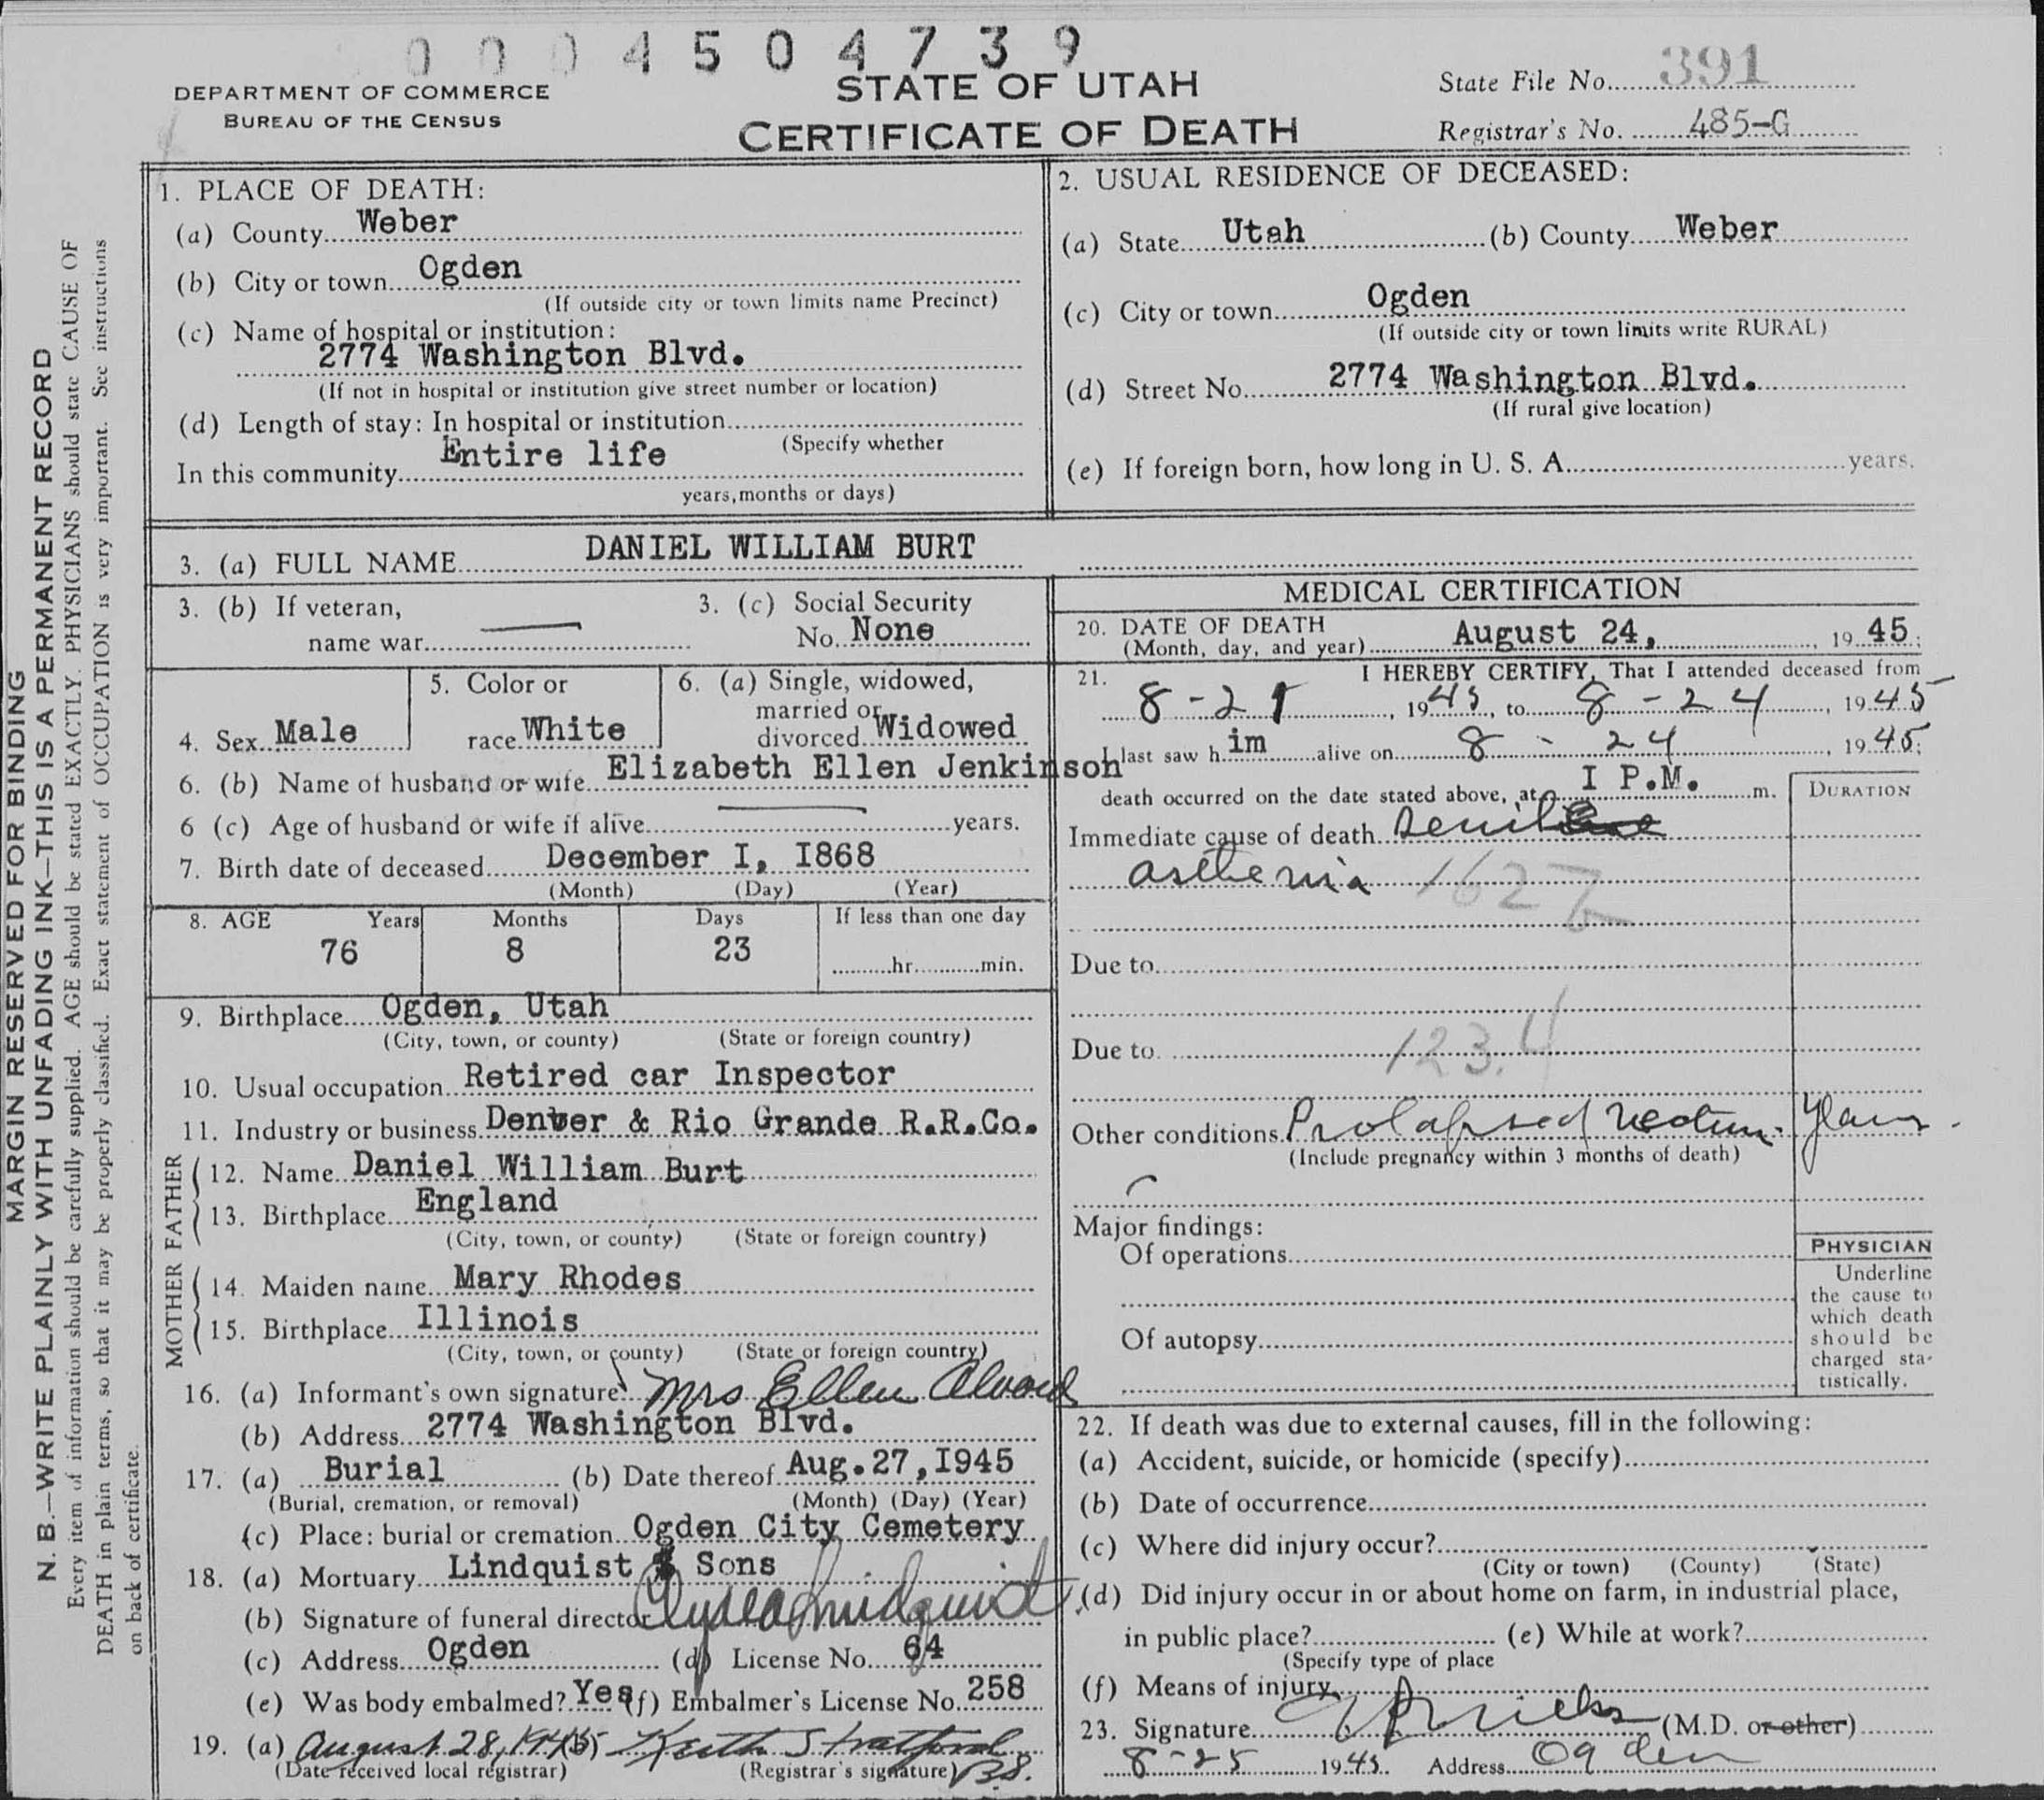 0004504739
DEPARTMENT OF COMMERCE
BUREAU OF THE CENSUS
STATE OF UTAH
CERTIFICATE OF DEATH
State File No. 391
Registrar's No. 485-G
MARGIN RESERVED FOR BINDING
N. B.—WRITE PLAINLY WITH UNFADING INK—THIS IS A PERMANENT RECORD
Every item of information should be carefully supplied. AGE should be stated EXACTLY. PHYSICIANS should state CAUSE OF
DEATH in plain terms, so that it may be properly classified. Exact statement of OCCUPATION is very important. See instructions
on back of certificate.
1. PLACE OF DEATH:
(a) County Weber
(b) City or town Ogden
(If outside city or town limits name Precinct)
(c) Name of hospital or institution:
2774 Washington Blvd.
(If not in hospital or institution give street number or location)
(d) Length of stay: In hospital or institution
(Specify whether
In this community Entire life
years, months or days)
2. USUAL RESIDENCE OF DECEASED:
(a) State Utah (b) County Weber
(c) City or town Ogden
(If outside city or town limits write RURAL)
(d) Street No. 2774 Washington Blvd.
(If rural give location)
(e) If foreign born, how long in U. S. A. years.
3. (a) FULL NAME DANIEL WILLIAM BURT
3. (b) If veteran,
name war
3. (c) Social Security
No. None
4. Sex Male
5. Color or
race White
6. (a) Single, widowed,
married or
divorced Widowed
6. (b) Name of husband or wife Elizabeth Ellen Jenkinson
6 (c) Age of husband or wife if alive years.
7. Birth date of deceased December I, I868
(Month) (Day) (Year)
8. AGE Years Months Days If less than one day
76 8 23 hr. min.
9. Birthplace Ogden, Utah
(City, town, or county) (State or foreign country)
10. Usual occupation Retired car Inspector
11. Industry or business Denver & Rio Grande R.R.Co.
FATHER
12. Name Daniel William Burt
13. Birthplace England
(City, town, or county) (State or foreign country)
MOTHER
14. Maiden name Mary Rhodes
15. Birthplace Illinois
(City, town, or county) (State or foreign country)
16. (a) Informant's own signature Mrs Ellen Alvord
(b) Address 2774 Washington Blvd.
17. (a) Burial (b) Date thereof Aug.27,I945
(Burial, cremation, or removal) (Month) (Day) (Year)
(c) Place: burial or cremation Ogden City Cemetery
18. (a) Mortuary Lindquist & Sons
(b) Signature of funeral director Lindquist
(c) Address Ogden (d) License No. 64
(e) Was body embalmed? Yes (f) Embalmer's License No. 258
19. (a) August 28, 1945 (b) Keith Stratford
(Date received local registrar) (Registrar's signature) B.S.
MEDICAL CERTIFICATION
20. DATE OF DEATH
(Month, day, and year) August 24, 19 45.
21. I HEREBY CERTIFY, That I attended deceased from
8-21, 1945, to 8-24, 1945
I last saw h im alive on 8-24, 1945;
death occurred on the date stated above, at I P.M. m.
DURATION
Immediate cause of death Senile
asthenia 162 b
Due to
Due to 123.4
Other conditions Prolapsed rectum. years.
(Include pregnancy within 3 months of death)
Major findings:
Of operations
Of autopsy
PHYSICIAN
Underline
the cause to
which death
should be
charged sta-
tistically.
22. If death was due to external causes, fill in the following:
(a) Accident, suicide, or homicide (specify)
(b) Date of occurrence
(c) Where did injury occur?
(City or town) (County) (State)
(d) Did injury occur in or about home on farm, in industrial place,
in public place? (e) While at work?
(Specify type of place
(f) Means of injury
23. Signature (M.D. or other)
8-25 1945. Address Ogden